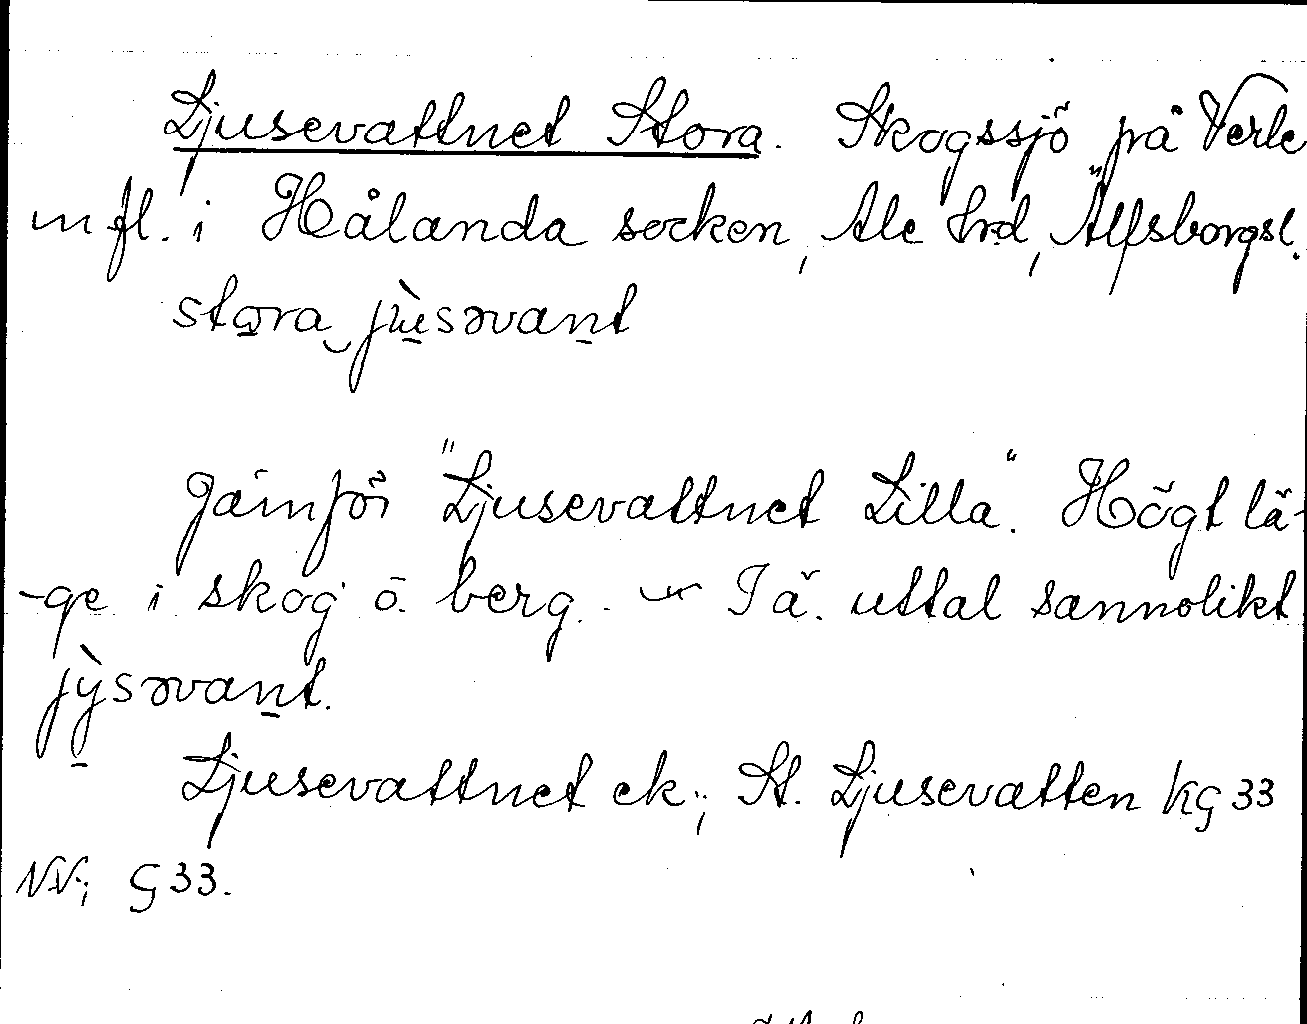 Ljusevattnet Stora. Skogssjö på Verle
m fl. i Hålanda socken, Ale hrd, Älfsborgsl.
stora jùsəvant
Jämför "Ljusevattnet Lilla". Högt lä-
-ge i skog o. berg. - Iä. uttal sannolikt
jỳsəvant.
Ljusevattnet ek.; St. Ljusevatten kG 33
NV; G 33.